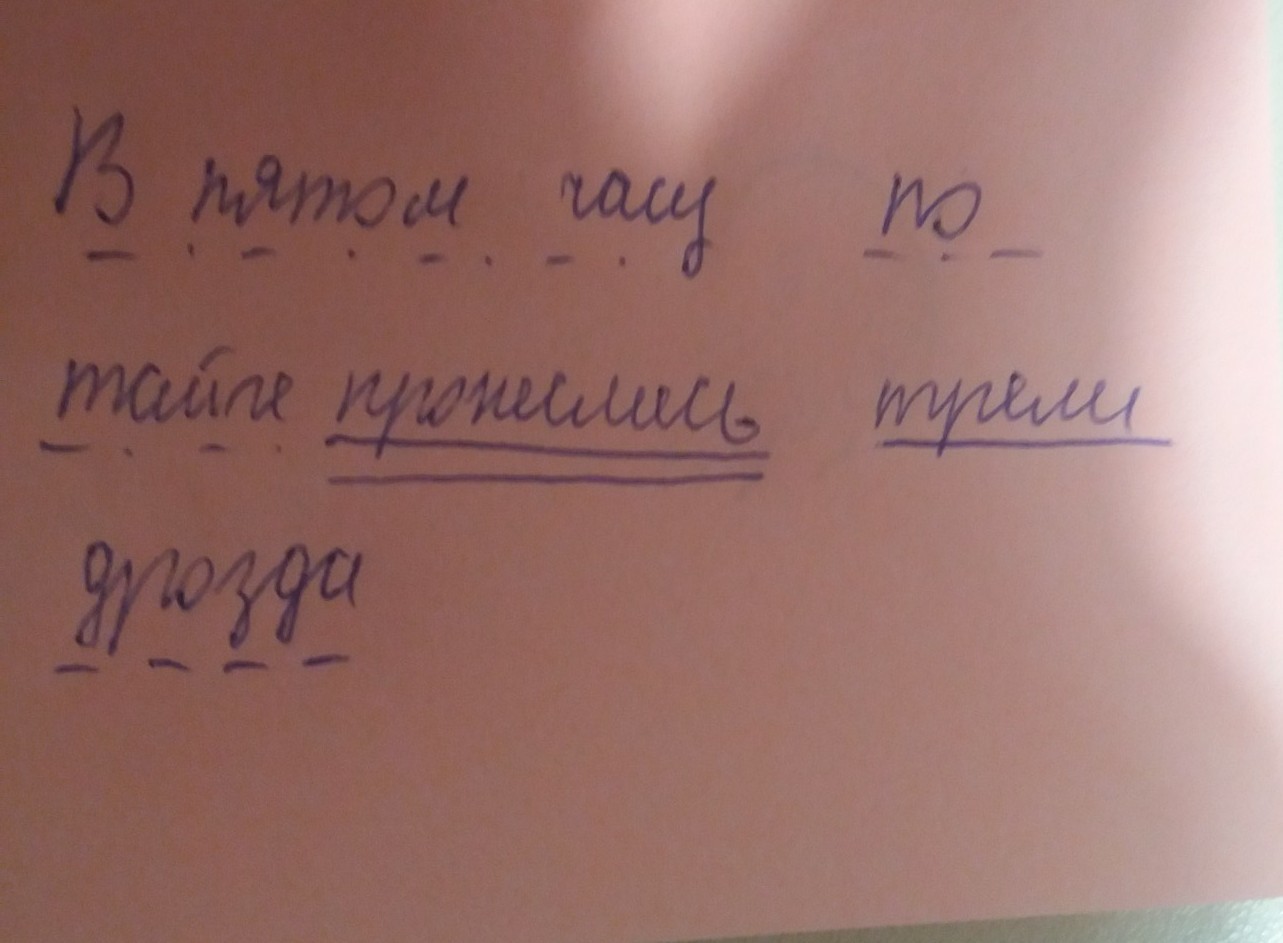 В пятом часу по
тайге пронеслись трели
дрозда